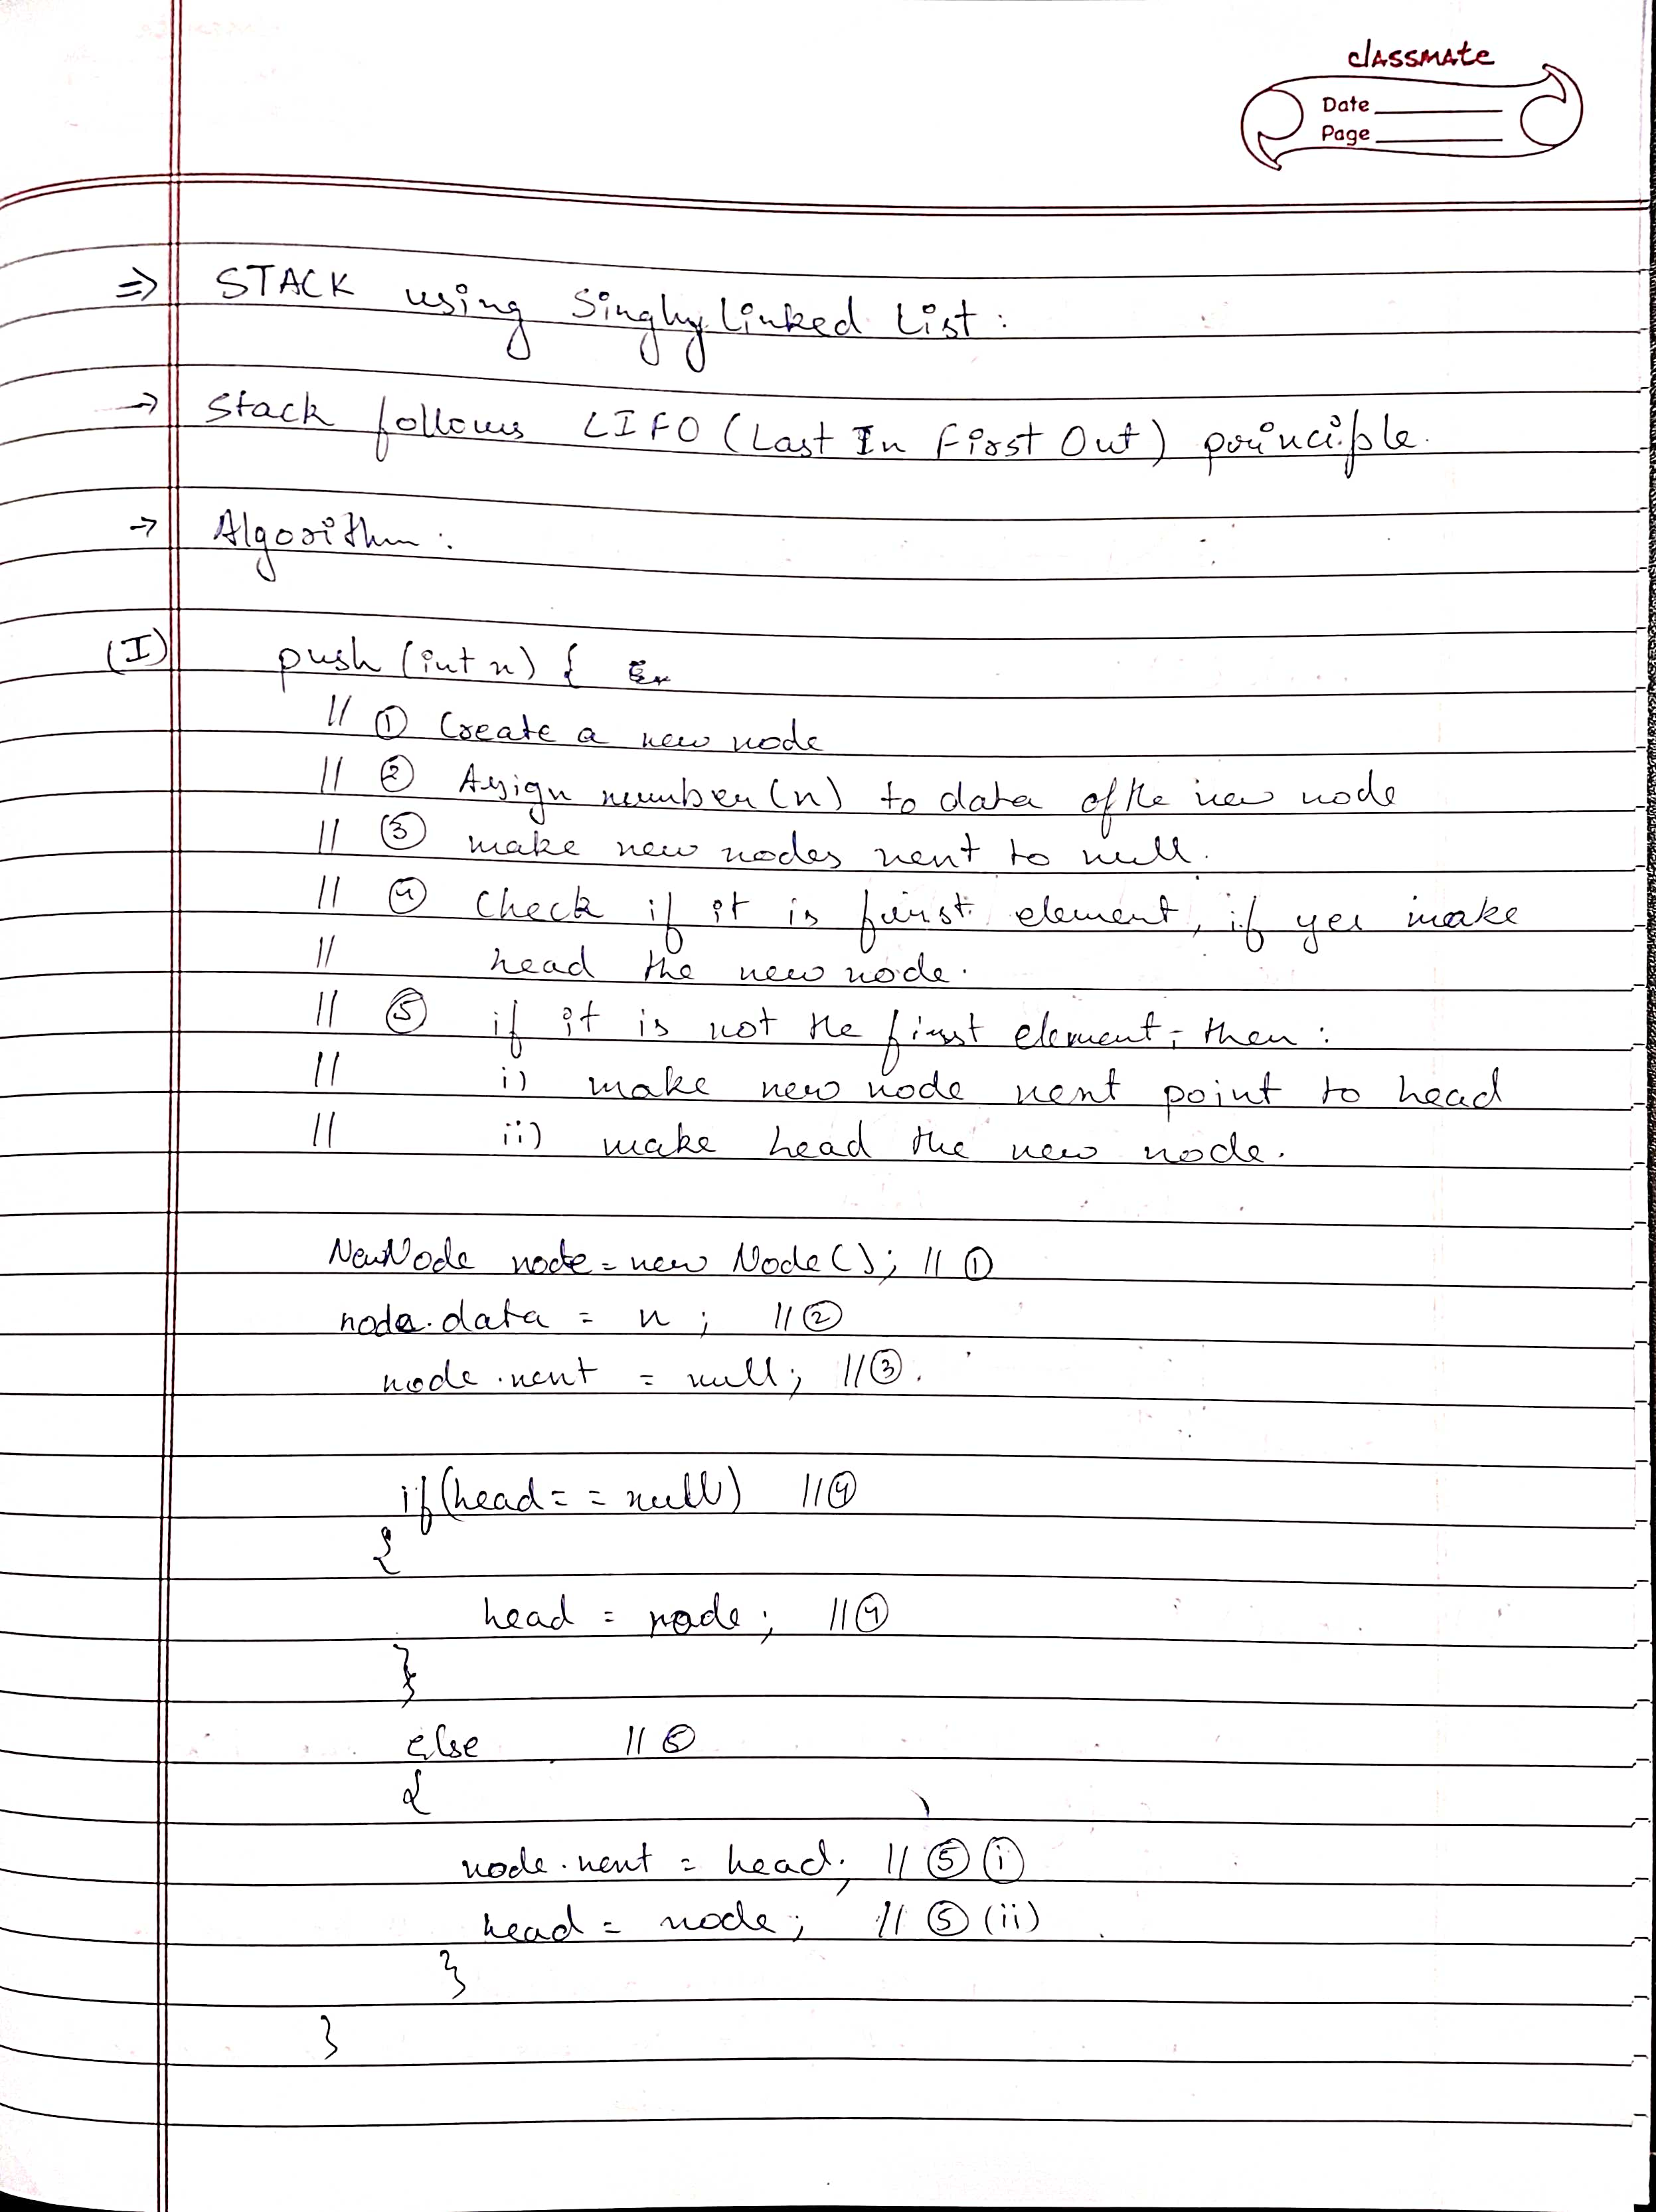 classmate
Date
Page
=> STACK using Singly Linked List :
-> Stack follows LIFO (Last In First Out) principle.
-> Algorithm :
(I) push (int n) {
// ① Create a new node
// ② Assign number (n) to data of the new node
// ③ make new nodes next to null.
// ④ Check if it is first element, if yes make
// head the new node.
// ⑤ if it is not the first element, then :
// i) make new node next point to head
// ii) make head the new node.
NewNode node = new Node(); // ①
node.data = n ; // ②
node.next = null; // ③.
if (head == null) // ④
{
head = node; // ④
}
else // ⑤
{
node.next = head; // ⑤ ⓘ
head = node; // ⑤ (ii)
}
}